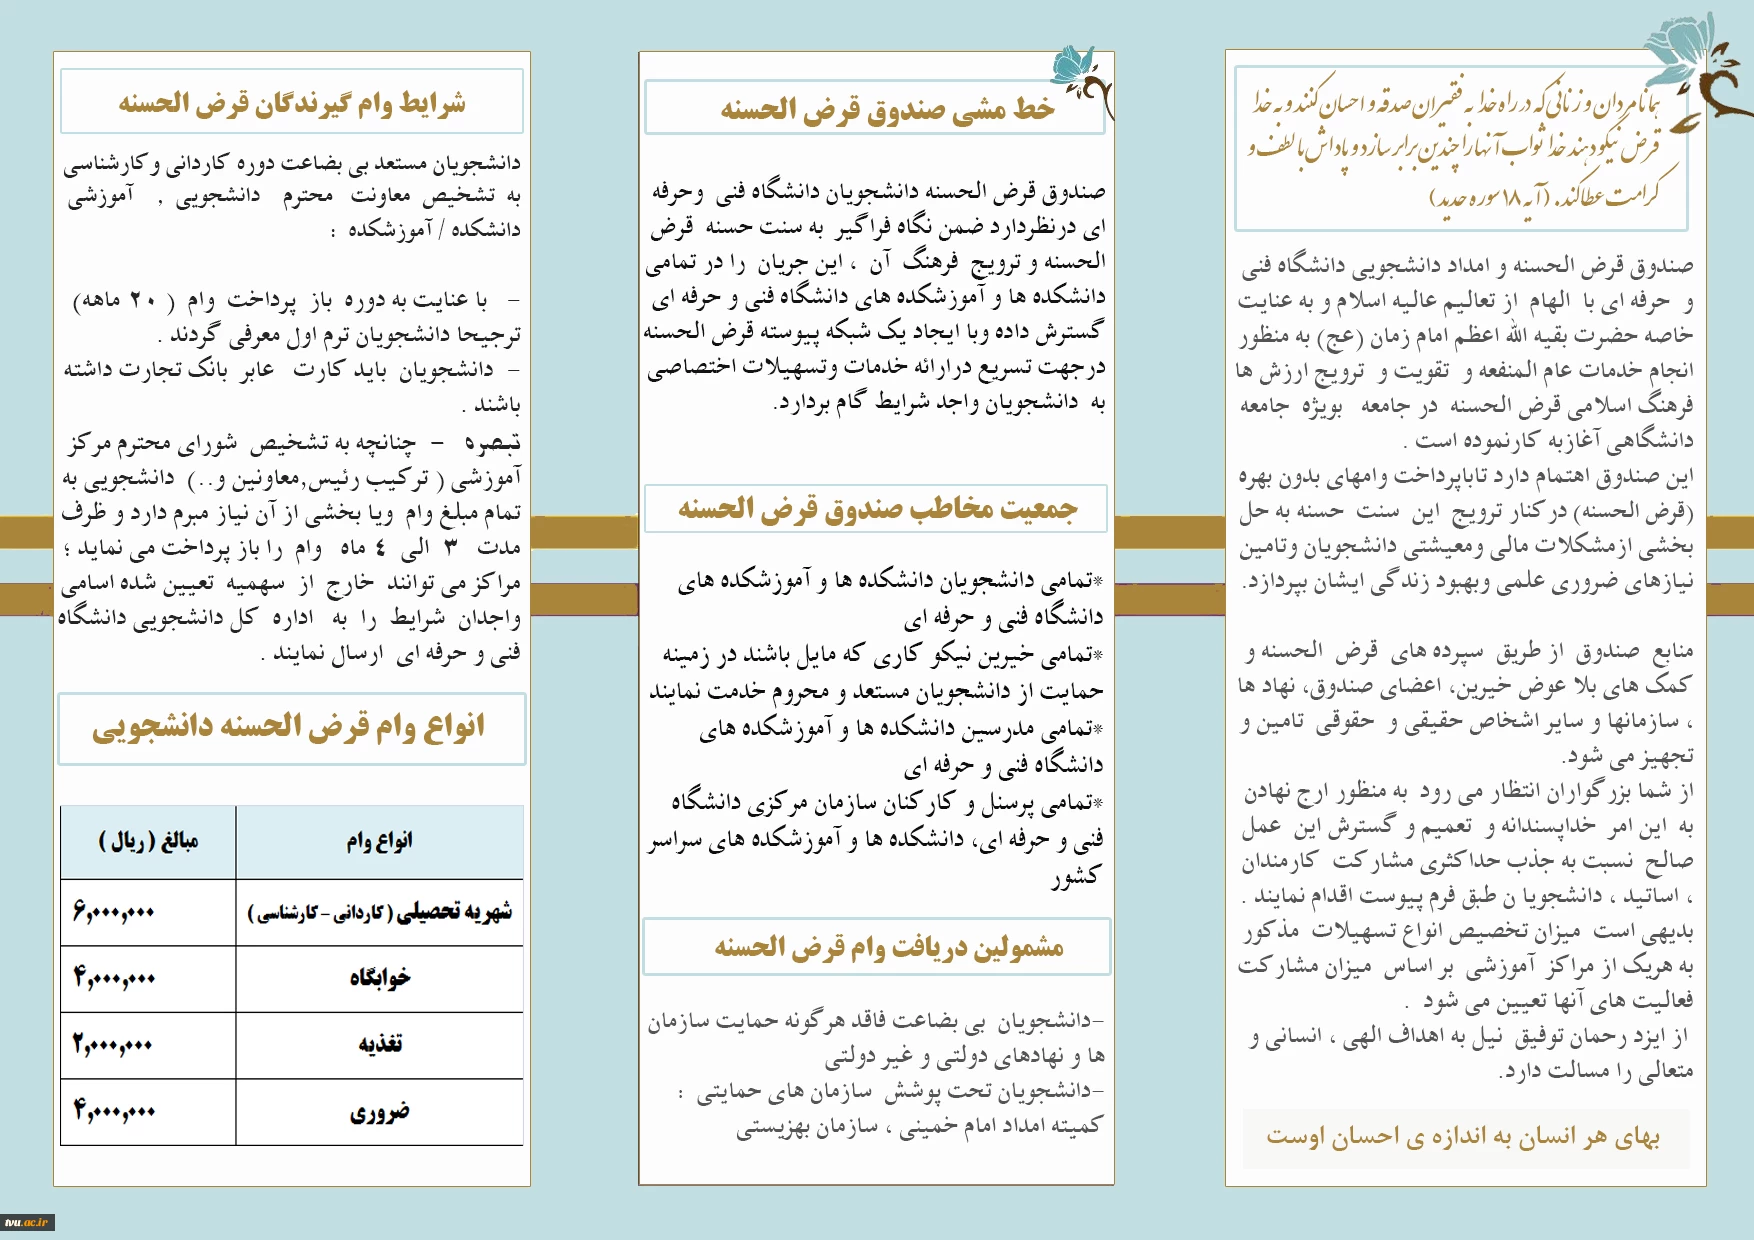 همانا مردان و زنانی که در راه خدا به فقیران صدقه و احسان کنند و به خدا
قرض نیکو دهند خدا ثواب آنها را چندین برابر سازد و پاداش با لطف و
کرامت عطا کند. (آیه ۱۸ سوره حدید)
صندوق قرض الحسنه و امداد دانشجویی دانشگاه فنی
و حرفه ای با الهام از تعالیم عالیه اسلام و به عنایت
خاصه حضرت بقیه الله اعظم امام زمان (عج) به منظور
انجام خدمات عام المنفعه و تقویت و ترویج ارزش ها
فرهنگ اسلامی قرض الحسنه در جامعه بویژه جامعه
دانشگاهی آغازبه کارنموده است .
این صندوق اهتمام دارد تاباپرداخت وامهای بدون بهره
(قرض الحسنه) درکنار ترویج این سنت حسنه به حل
بخشی ازمشکلات مالی ومعیشتی دانشجویان وتامین
نیازهای ضروری علمی وبهبود زندگی ایشان بپردازد.
منابع صندوق از طریق سپرده های قرض الحسنه و
کمک های بلا عوض خیرین، اعضای صندوق، نهاد ها
، سازمانها و سایر اشخاص حقیقی و حقوقی تامین و
تجهیز می شود.
از شما بزرگواران انتظار می رود به منظور ارج نهادن
به این امر خداپسندانه و تعمیم و گسترش این عمل
صالح نسبت به جذب حداکثری مشارکت کارمندان
، اساتید ، دانشجویا ن طبق فرم پیوست اقدام نمایند .
بدیهی است میزان تخصیص انواع تسهیلات مذکور
به هریک از مراکز آموزشی بر اساس میزان مشارکت
فعالیت های آنها تعیین می شود .
از ایزد رحمان توفیق نیل به اهداف الهی ، انسانی و
متعالی را مسالت دارد.
بهای هر انسان به اندازه ی احسان اوست
خط مشی صندوق قرض الحسنه
صندوق قرض الحسنه دانشجویان دانشگاه فنی وحرفه
ای درنظردارد ضمن نگاه فراگیر به سنت حسنه قرض
الحسنه و ترویج فرهنگ آن ، این جریان را در تمامی
دانشکده ها و آموزشکده های دانشگاه فنی و حرفه ای
گسترش داده وبا ایجاد یک شبکه پیوسته قرض الحسنه
درجهت تسریع درارائه خدمات وتسهیلات اختصاصی
به دانشجویان واجد شرایط گام بردارد.
جمعیت مخاطب صندوق قرض الحسنه
*تمامی دانشجویان دانشکده ها و آموزشکده های
دانشگاه فنی و حرفه ای
*تمامی خیرین نیکو کاری که مایل باشند در زمینه
حمایت از دانشجویان مستعد و محروم خدمت نمایند
*تمامی مدرسین دانشکده ها و آموزشکده های
دانشگاه فنی و حرفه ای
*تمامی پرسنل و کارکنان سازمان مرکزی دانشگاه
فنی و حرفه ای، دانشکده ها و آموزشکده های سراسر
کشور
مشمولین دریافت وام قرض الحسنه
-دانشجویان بی بضاعت فاقد هرگونه حمایت سازمان
ها و نهادهای دولتی و غیر دولتی
-دانشجویان تحت پوشش سازمان های حمایتی :
کمیته امداد امام خمینی ، سازمان بهزیستی
شرایط وام گیرندگان قرض الحسنه
دانشجویان مستعد بی بضاعت دوره کاردانی وکارشناسی
به تشخیص معاونت محترم دانشجویی , آموزشی
دانشکده / آموزشکده :
- با عنایت به دوره باز پرداخت وام ( ۲۰ ماهه)
ترجیحا دانشجویان ترم اول معرفی گردند .
- دانشجویان باید کارت عابر بانک تجارت داشته
باشند .
تبصره - چنانچه به تشخیص شورای محترم مرکز
آموزشی ( ترکیب رئیس,معاونین و..) دانشجویی به
تمام مبلغ وام ویا بخشی از آن نیاز مبرم دارد و ظرف
مدت ۳ الی ٤ ماه وام را باز پرداخت می نماید ؛
مراکز می توانند خارج از سهمیه تعیین شده اسامی
واجدان شرایط را به اداره کل دانشجویی دانشگاه
فنی و حرفه ای ارسال نمایند .
انواع وام قرض الحسنه دانشجویی
انواع وام مبالغ ( ریال )
شهریه تحصیلی ( کاردانی - کارشناسی ) ۶,۰۰۰,۰۰۰
خوابگاه ۴,۰۰۰,۰۰۰
تغذیه ۲,۰۰۰,۰۰۰
ضروری ۴,۰۰۰,۰۰۰
tvu.ac.ir